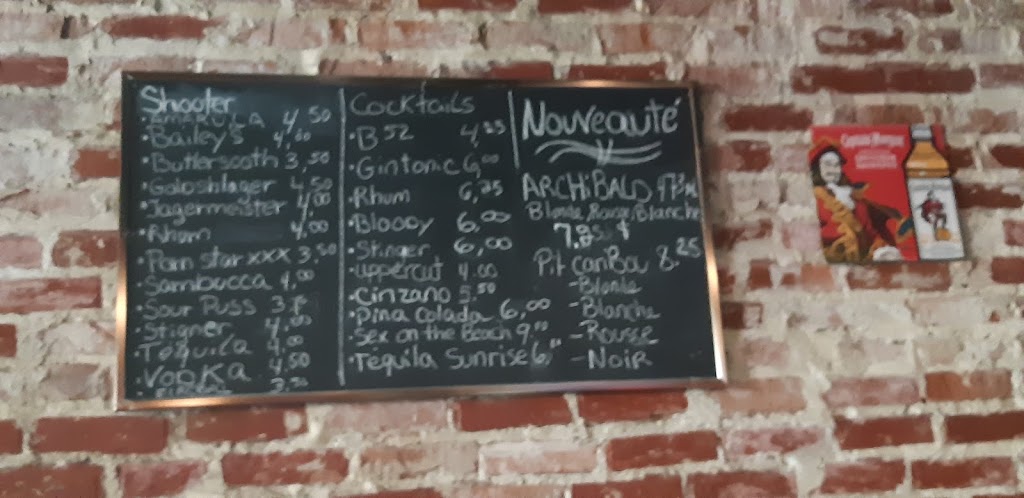 Shooter
AMARULA 4,50
• Bailey's 4,60
• Butterscoth 3,50
• Goloshlager 4,50
• Jagermeister 4,00
• Rhum 4,00
• Porn star xxx 3,50
• Sambucca 4,00
• Sour Puss
• Stigner 4,00
• Tequila 4,00
• Vodka 4,50
3,50
Cocktails
• B52 4,25
• Gintonic 6,00
• Rhum 6,25
• Bloody 6,00
• Stinger 6,00
• uppercut 4.00
• Cinzano 5,50
• Pina Colada 6,00
• Sex on the Beach 9,00
• Tequila Sunrise 6,00
Nouveauté
ARCHiBALD 473ml
Blonde, Rousse, Blanche
7,25 $
Pit Caribou 8.25
- Blonde
- Blanche
- Rousse
- NoiR
Captain Morgan